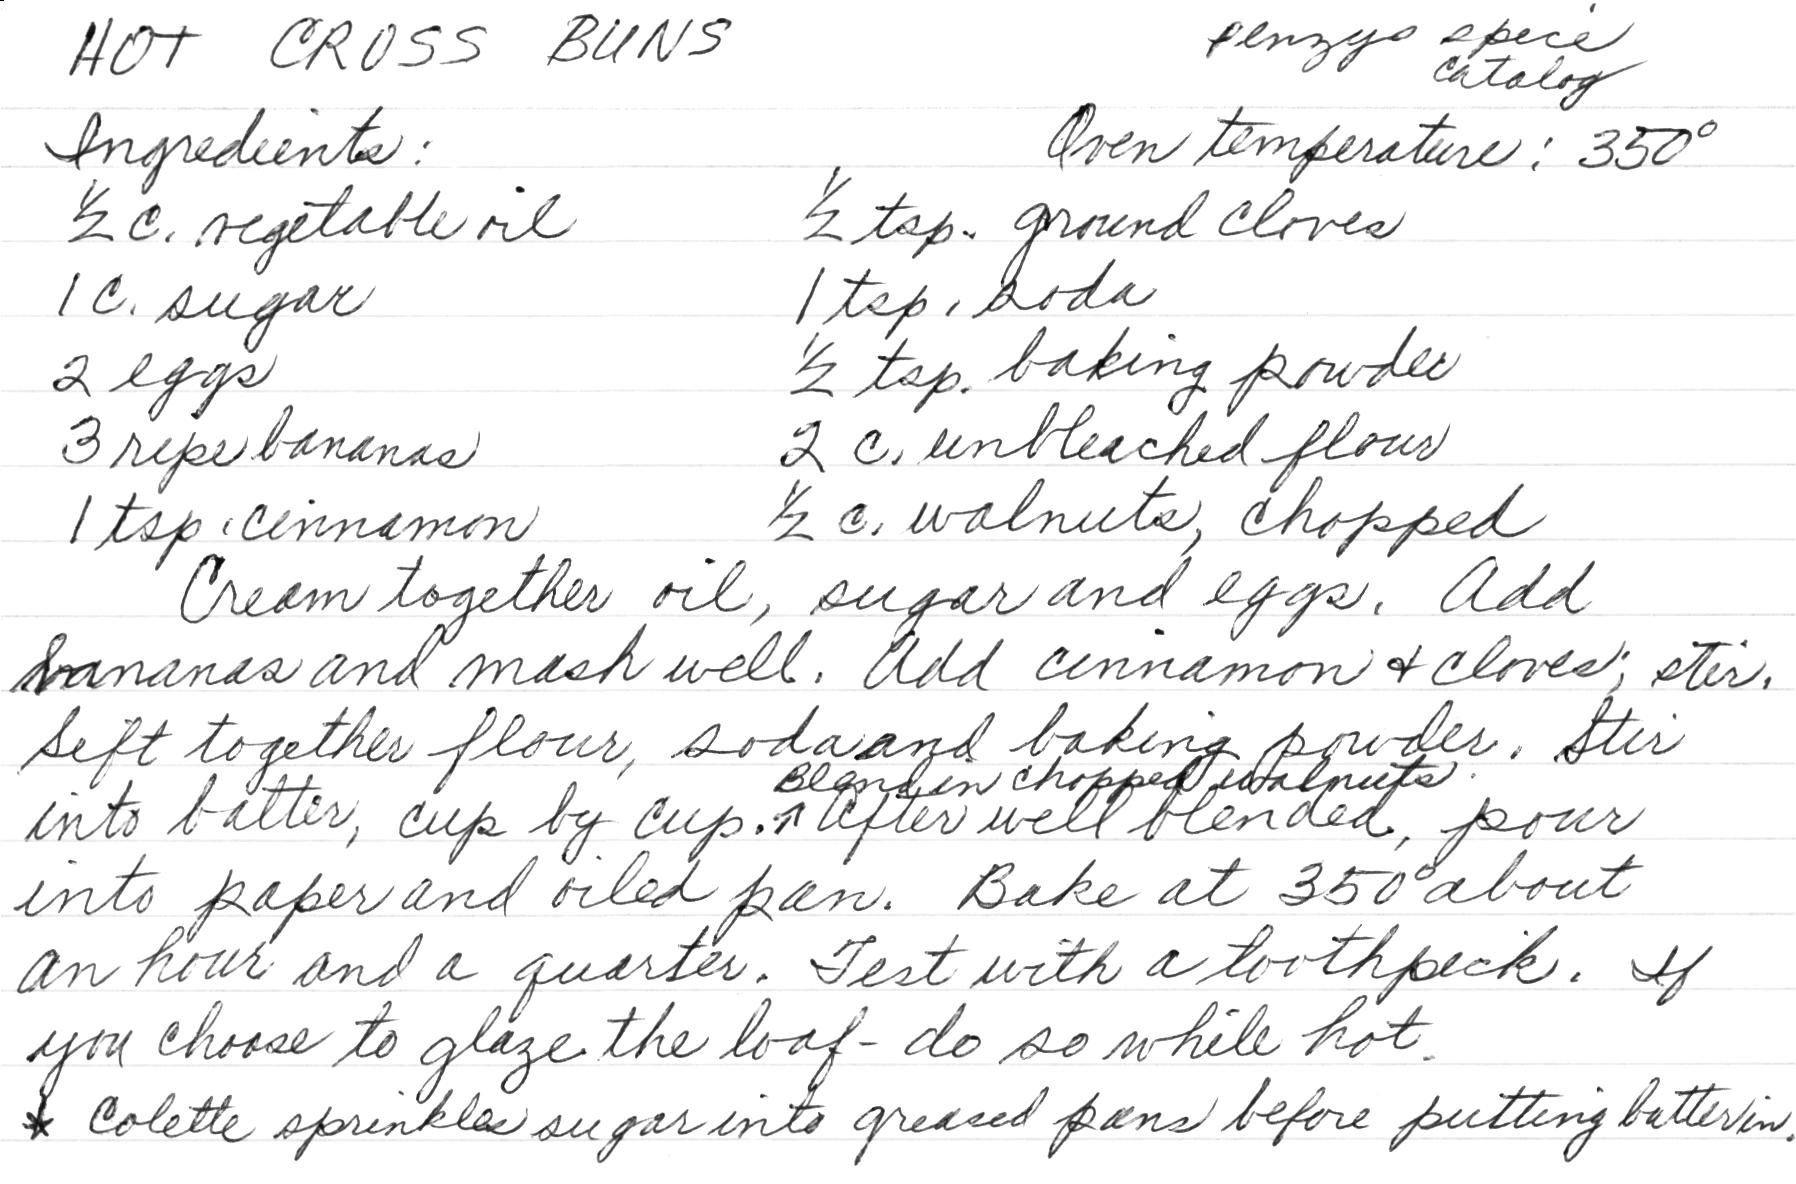 HOT CROSS BUNS
Penzys spice
catalog
Ingredients:
Oven temperature: 350°
½ c. vegetable oil
½ tsp. ground cloves
1 c. sugar
1 tsp. soda
2 eggs
½ tsp. baking powder
3 ripe bananas
2 c. unbleached flour
1 tsp. cinnamon
½ c. walnuts, chopped
Cream together oil, sugar and eggs. Add
bananas and mash well. Add cinnamon & cloves; stir.
Sift together flour, soda and baking powder. Stir
Blend in chopped walnuts.
into batter, cup by cup. ^ After well blended, pour
into paper and oiled pan. Bake at 350° about
an hour and a quarter. Test with a toothpick. If
you choose to glaze the loaf - do so while hot.
* Colette sprinkles sugar into greased pans before putting batter in.